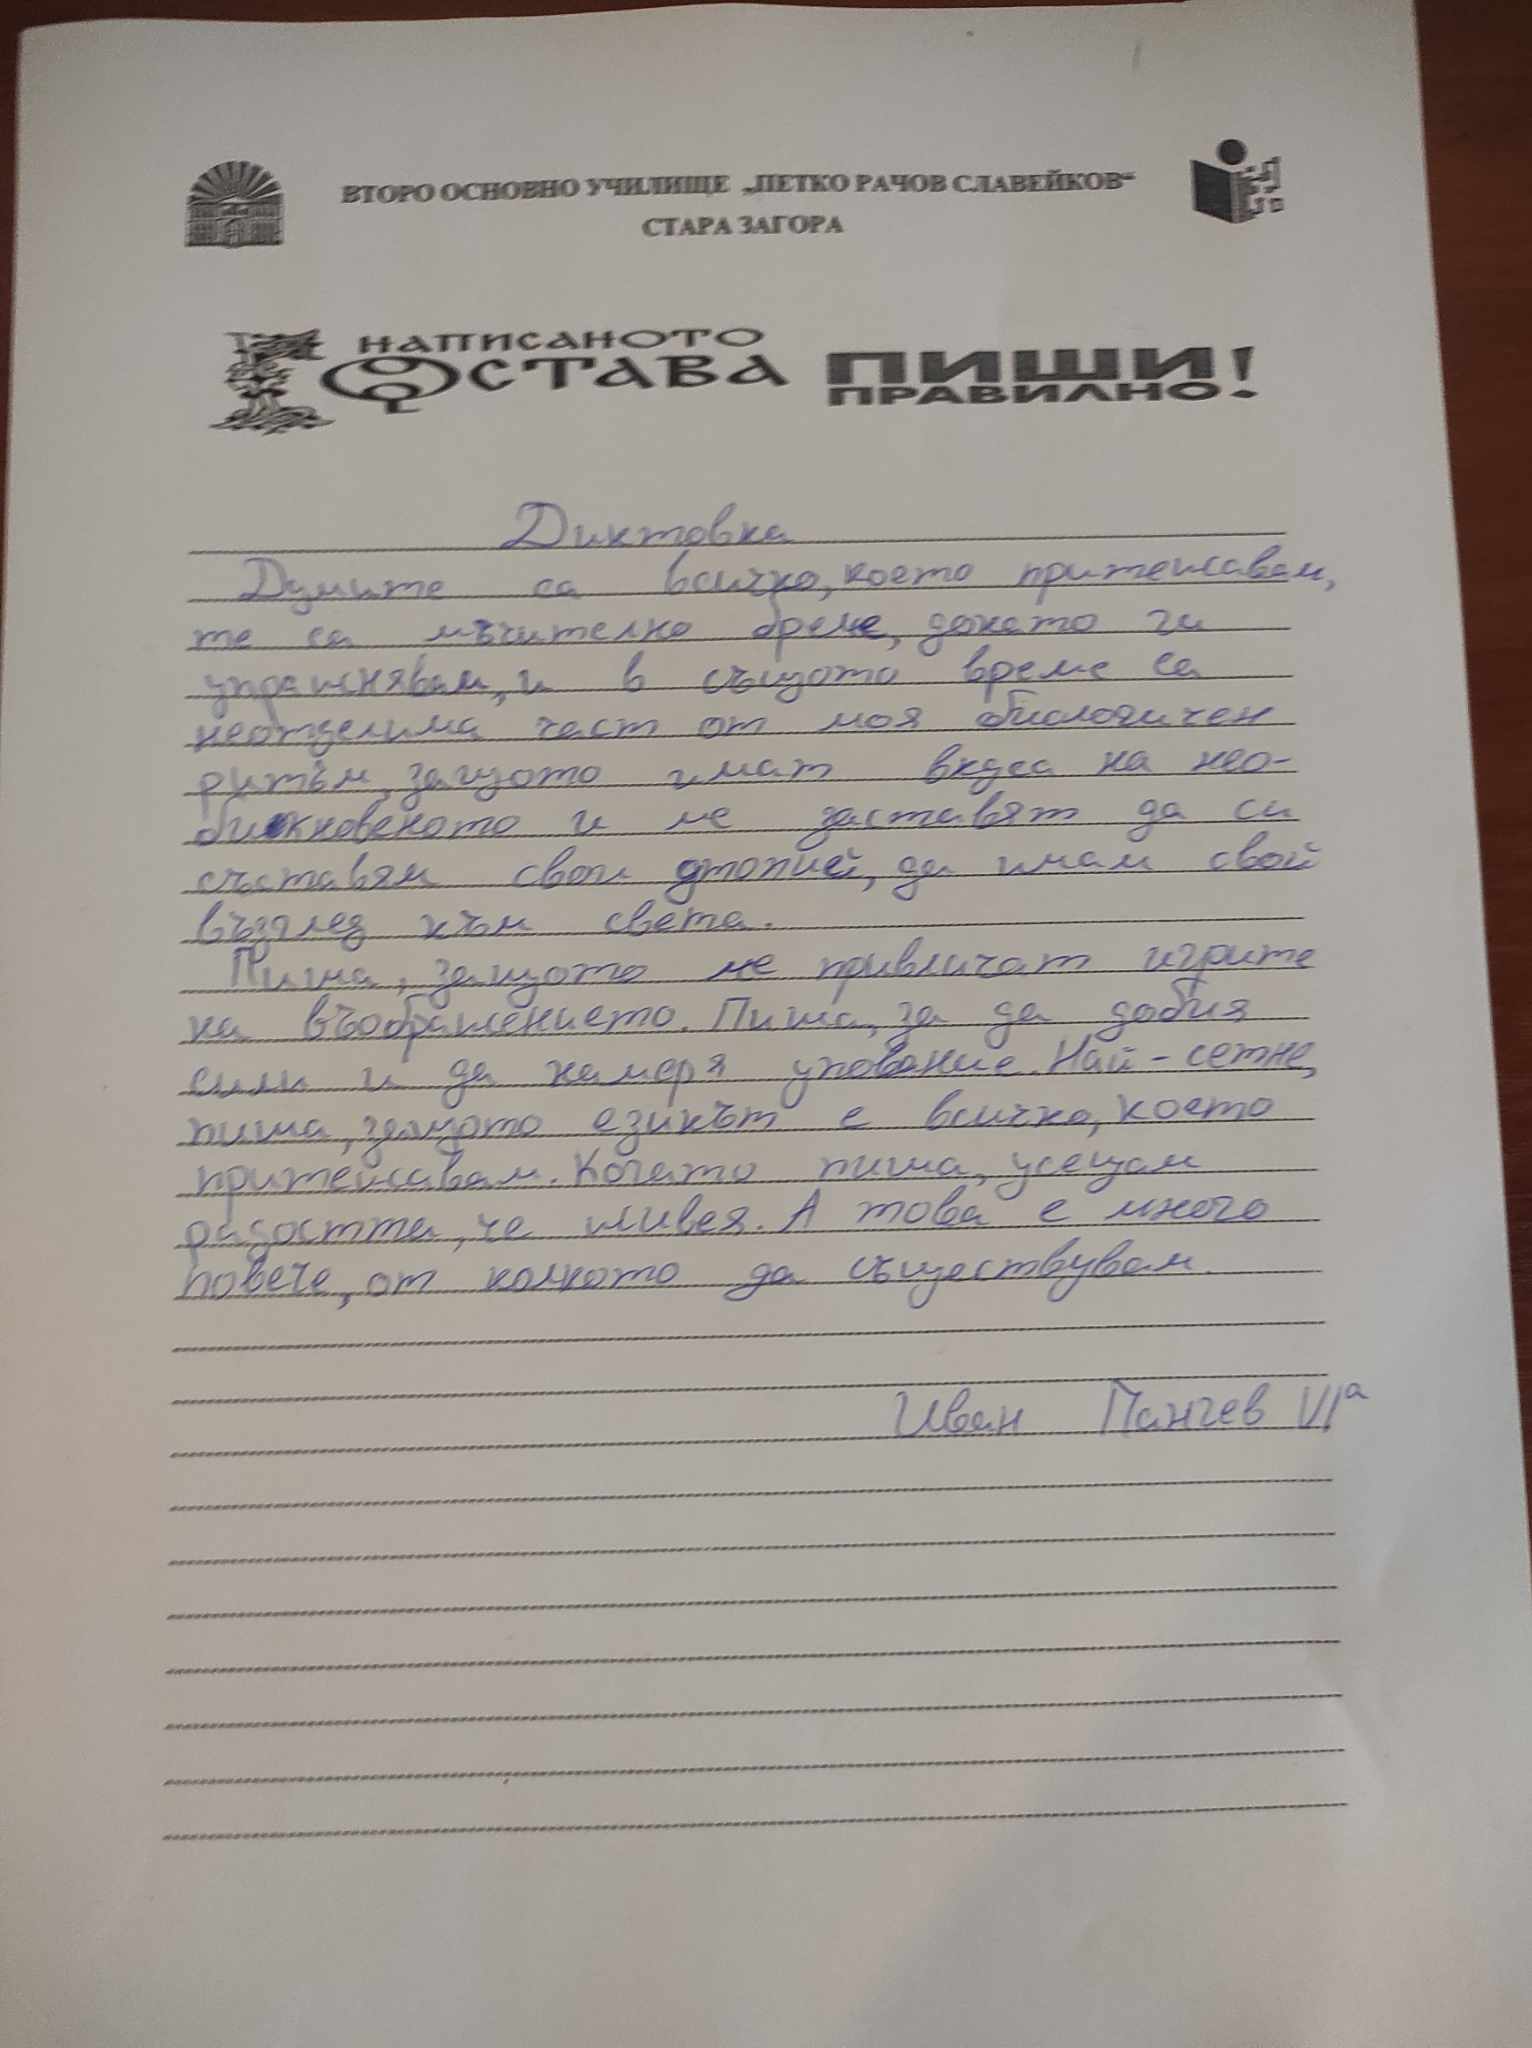 ВТОРО ОСНОВНО УЧИЛИЩЕ „ПЕТКО РАЧОВ СЛАВЕЙКОВ“
СТАРА ЗАГОРА
НАПИСАНОТО
ОСТАВА
ПИШИ
ПРАВИЛНО!
Диктовка
Думите са всичко, което притежавам,
те са мъчително бреме, докато ги
упражнявам, и в същото време са
неотделима част от моя биологичен
ритъм, защото имат вкуса на нео-
бикновеното и ме заставят да си
съставям свои утопией, да имам свой
възглед към света.
Пиша, защото ме привличат игрите
на въображението. Пиша, за да добия
сили и да намеря упование. Най-сетне,
пиша, защото езикът е всичко, което
притежавам. Когато пиша, усещам
радостта, че живея. А това е много
повече, от колкото да съществувам.
Иван Панчев VIа